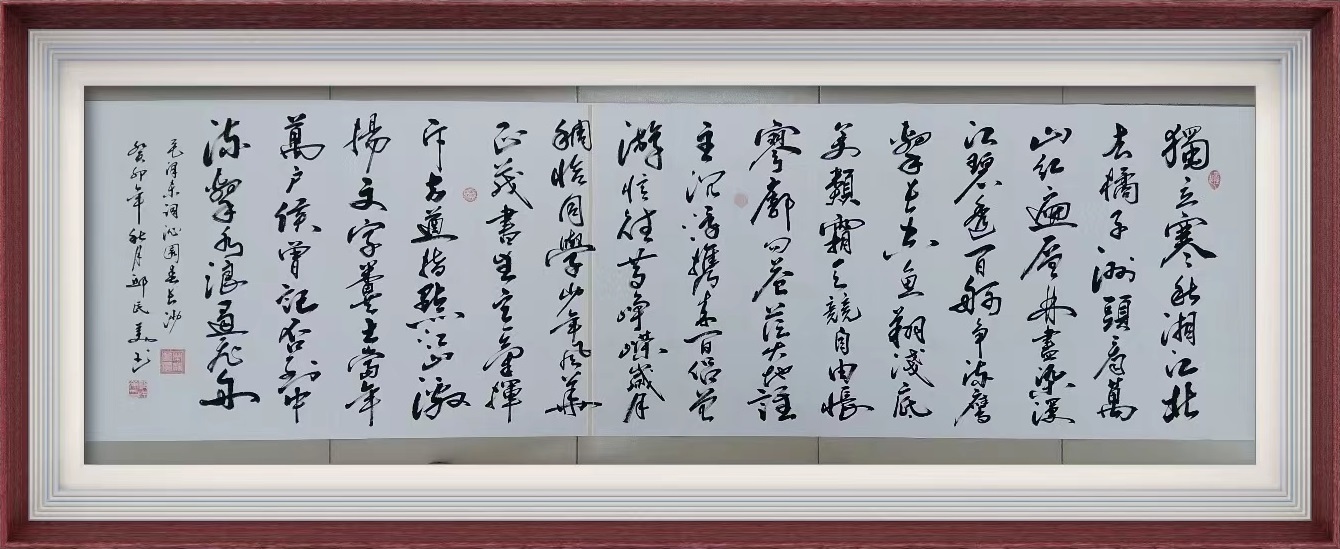 獨立寒秋湘江北
去橘子洲頭看萬
山紅遍層林盡染漫
江碧透百舸爭流鷹
擊長空魚翔淺底
萬類霜天競自由悵
寥廓問蒼茫大地誰
主沉浮攜來百侶曾
游憶往昔崢嶸歲月
稠恰同學少年風華
正茂書生意氣揮
斥方遒指點江山激
揚文字糞土當年
萬戶侯曾記否到中
流擊水浪遏飛舟
毛澤东詞沁園春长沙
癸卯年秋月邱民美书